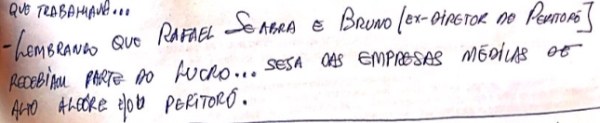 QUE TRABALHAVA...
-LEMBRANDO QUE RAFAEL SEABRA E BRUNO [EX-DIRETOR DO PERITORÓ]
RECEBIAM PARTE DO LUCRO... SEJA DAS EMPRESAS MÉDICAS DE
ALTO ALEGRE E/OU PERITORÓ.